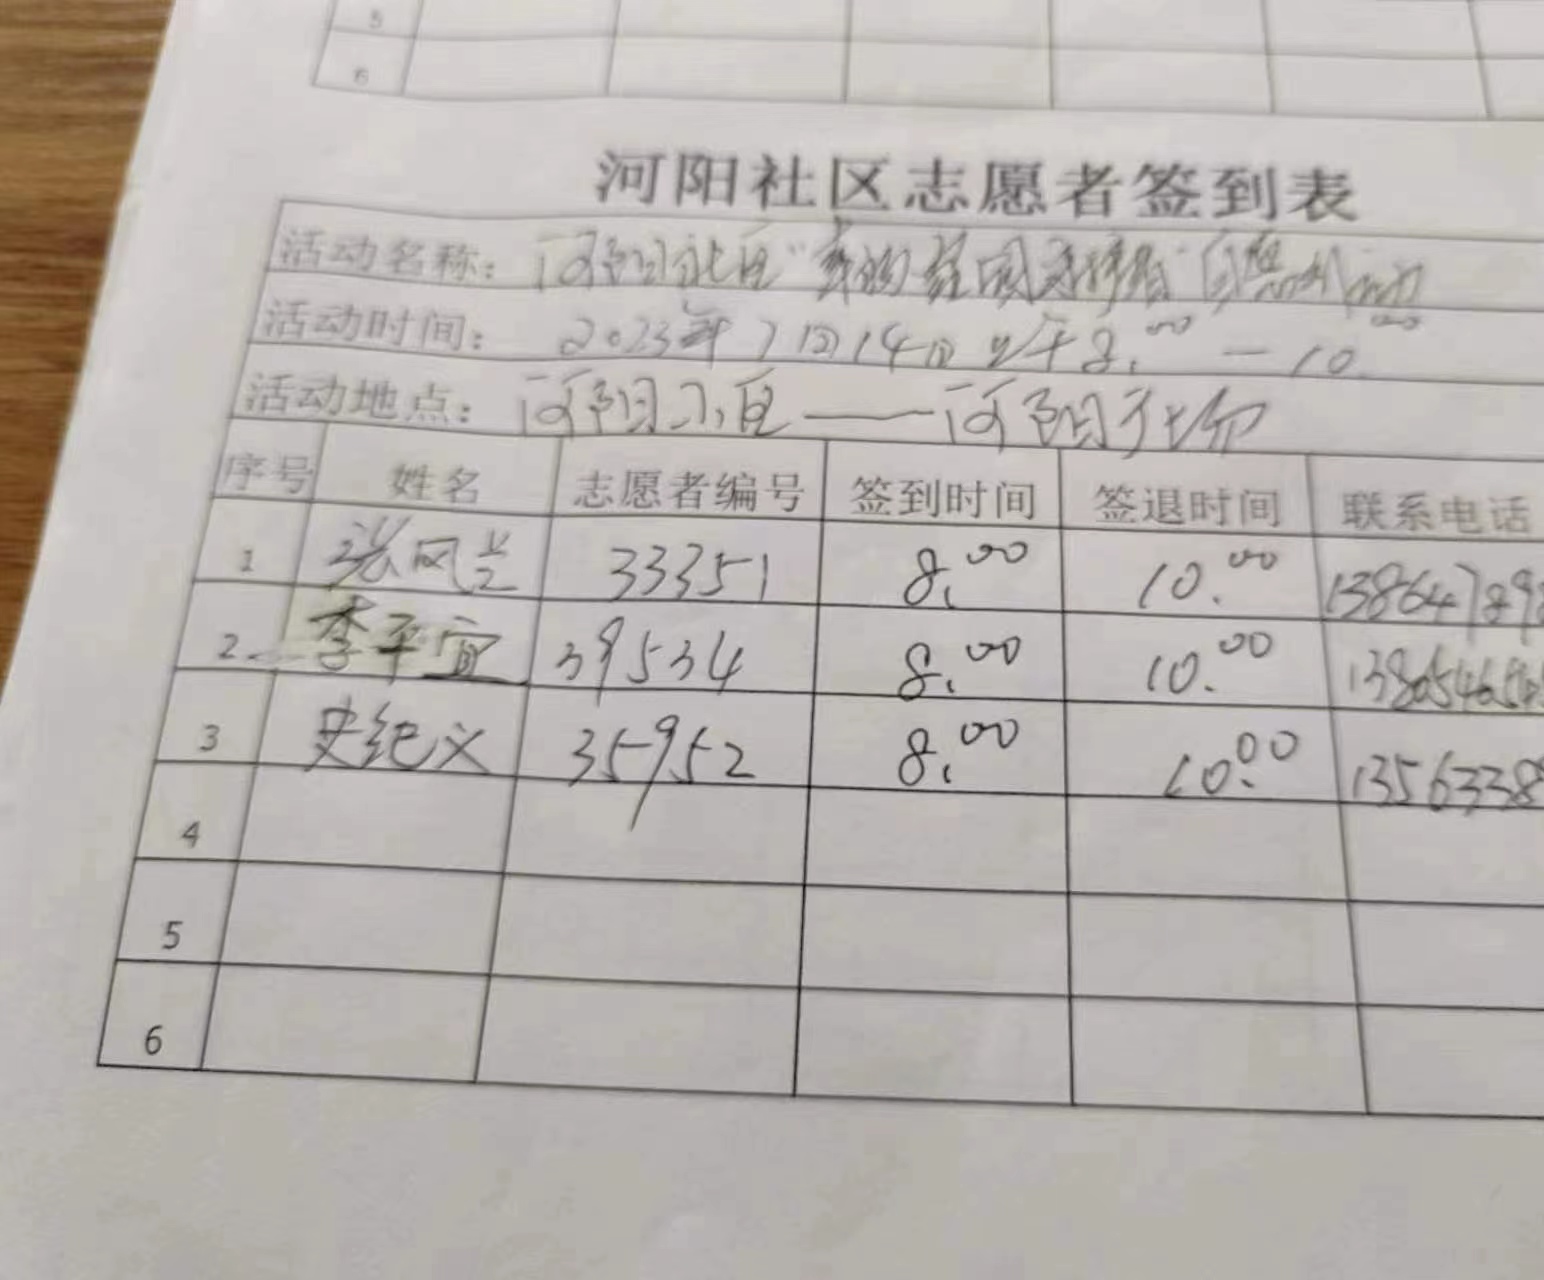 5
6
河阳社区志愿者签到表
活动名称: 河阳社区“我的 志愿
活动时间: 2023年7月14日上午8.00 — 10.00
活动地点: 河阳小区——河阳广场
序号 姓名 志愿者编号 签到时间 签退时间 联系电话
1 张凤兰 33351 8.00 10.00 138647898
2 李平宜 39534 8.00 10.00
3 史纪义 35952 8.00 10.00 1356338
4
5
6